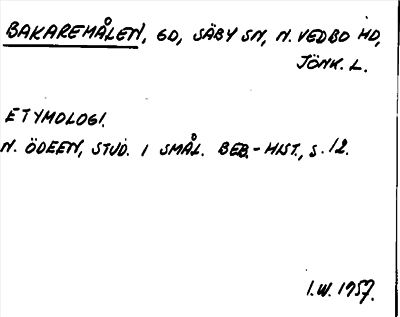 BAKAREMÅLEN, GD, SÄBY SN, N. VEDBO HD,
JÖNK. L.
ETYMOLOGI.
N. ÖDEEN, STUD. I SMÅL. BEB.-HIST., S. 12.
I.W. 1957.